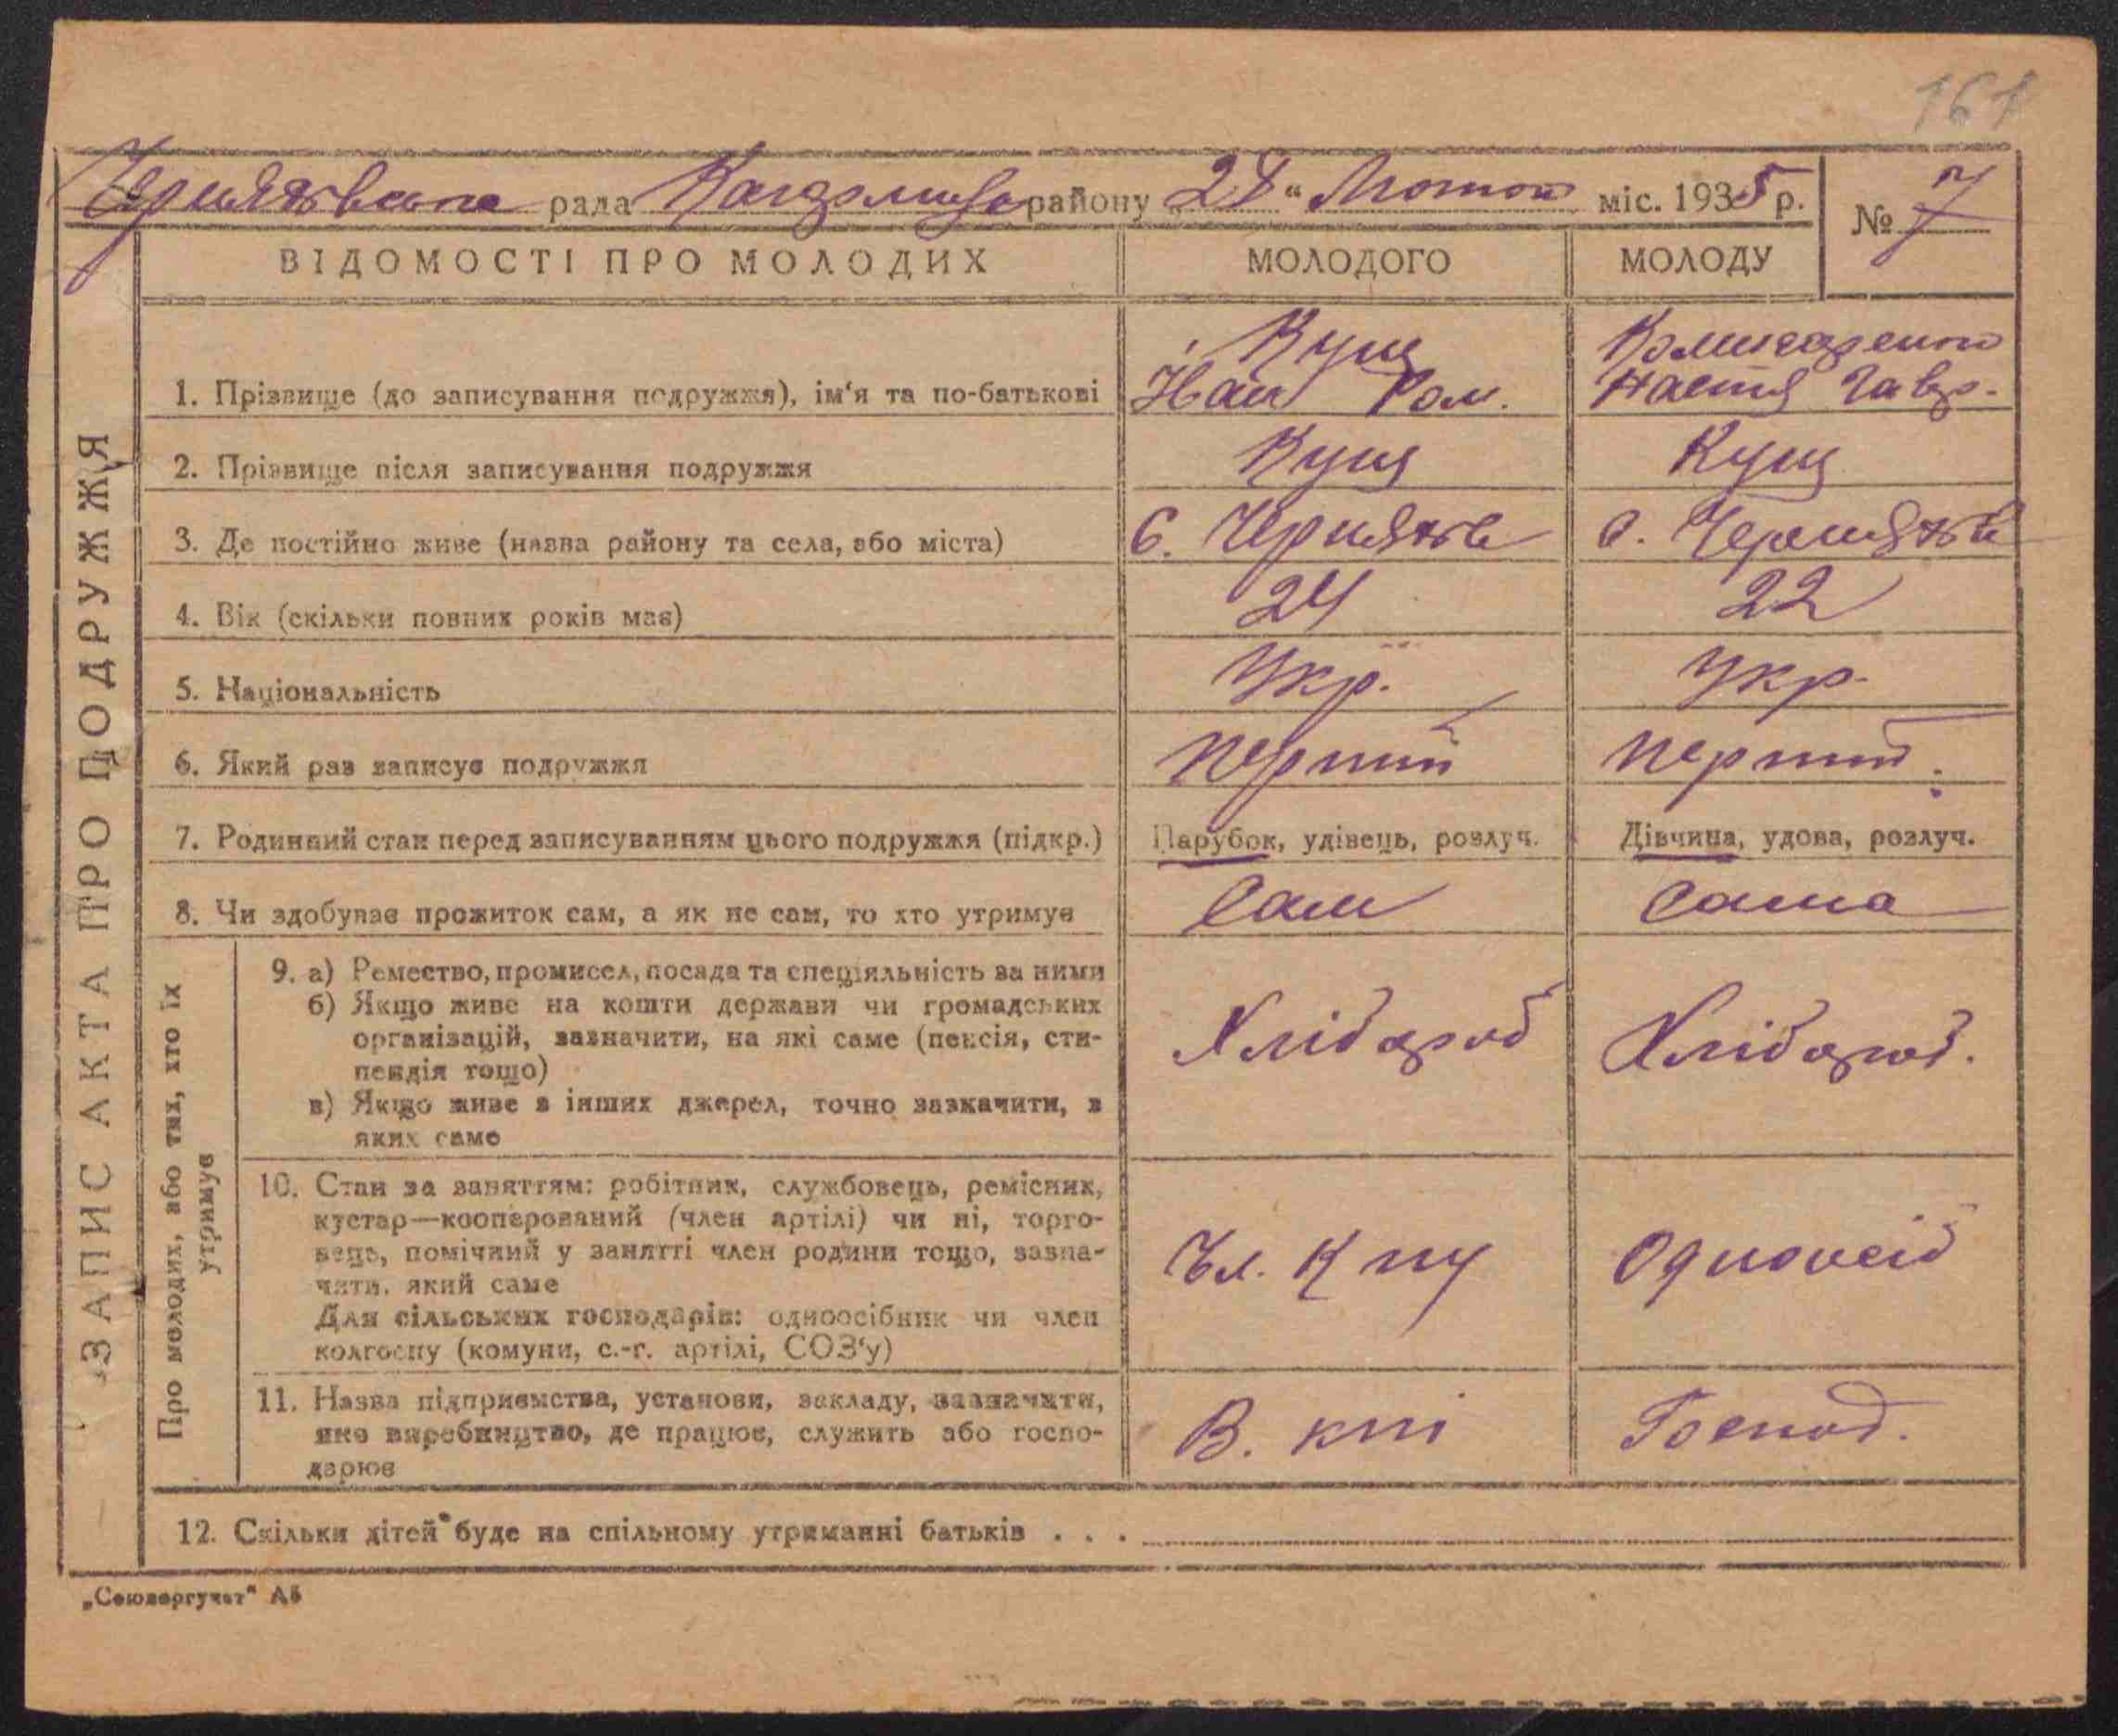 161
рада району " міс. 1935 р.
№ 7
ВІДОМОСТІ ПРО МОЛОДИХ МОЛОДОГО МОЛОДУ
Кущ
Іван Ром.
Комисаренко
Настя Гавр.
1. Прізвище (до записування подружжя), ім'я та по-батькові
2. Прізвище після записування подружжя Кущ Кущ
3. Де постійно живе (назва району та села, або міста) С. Черняхів с. Черняхів
4. Вік (скільки повних років має) 24 22
5. Національність Укр. Укр.
6. Який раз записує подружжя перший перший.
7. Родинний стан перед записуванням цього подружжя (підкр.) Парубок, удівець, розлуч. Дівчина, удова, розлуч.
8. Чи здобуває прожиток сам, а як не сам, то хто утримує Сам Сама
9. а) Ремество, промисел, посада та спеціяльність за ними
б) Якщо живе на кошти держави чи громадських
організацій, зазначити, на які саме (пенсія, сти-
пендія тощо)
в) Якщо живе з інших джерел, точно зазначити, з
яких саме
Хлібороб Хлібороб.
10. Стан за заняттям: робітник, службовець, ремісник,
кустар—кооперований (член артілі) чи ні, торго-
вець, помічний у занятті член родини тощо, зазна-
чити, який саме
Для сільських господарів: одноосібник чи член
колгоспу (комуни, с.-г. артілі, СОЗ'у)
Чл.
11. Назва підприємства, установи, закладу, зазначити,
яке виробництво, де працює, служить або госпо-
дарює
В. Господ.
12. Скільки дітей буде на спільному утриманні батьків . . .
ЗАПИС АКТА ПРО ПОДРУЖЖЯ
Про молодих, або тих, хто їх
утримує
„Союзоргучет" А5